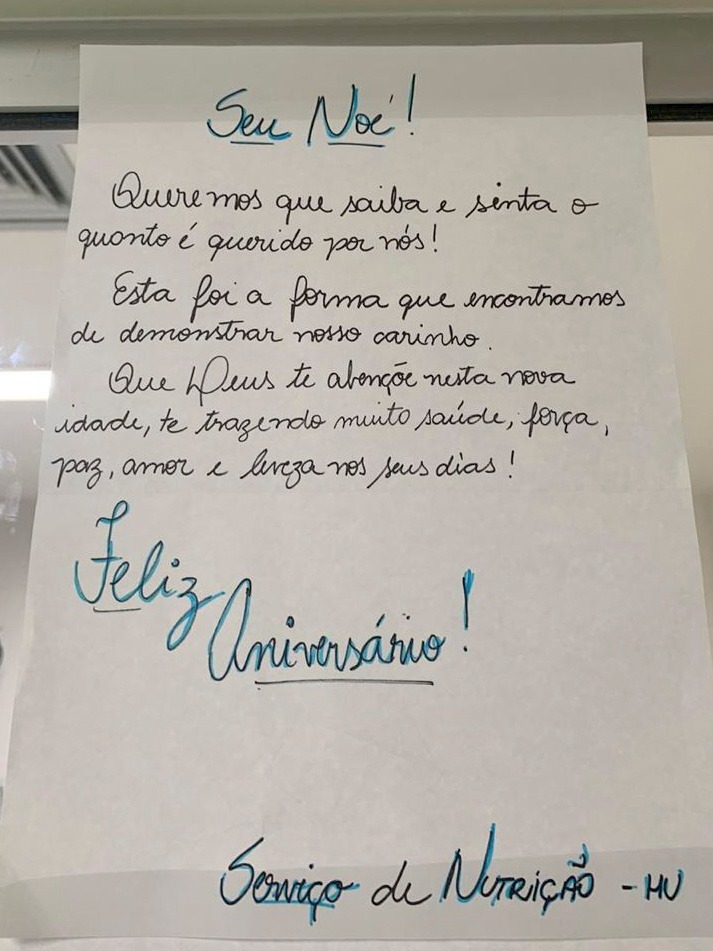 Seu Noé!
Queremos que saiba e sinta o
quanto é querido por nós!
Esta foi a forma que encontramos
de demonstrar nosso carinho.
Que Deus te abençõe nesta nova
idade, te trazendo muito saúde, força,
paz, amor e leveza nos seus dias!
Feliz
Aniversário!
Serviço de Nutrição - HU